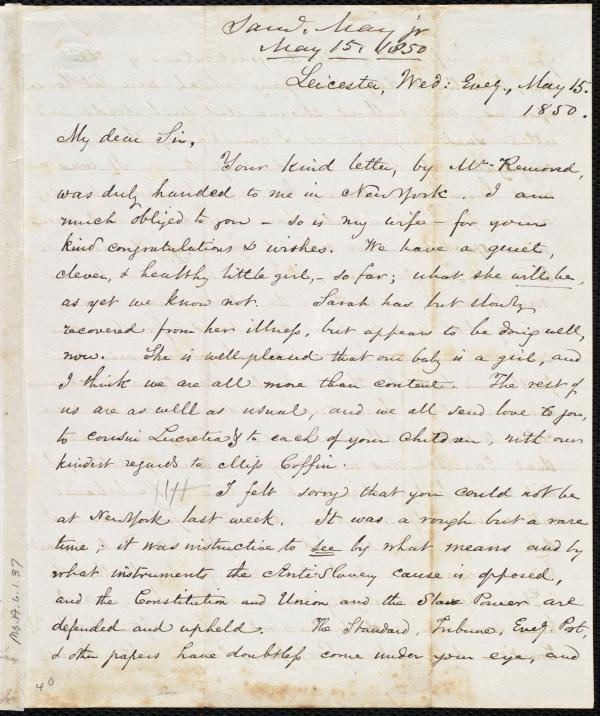 Saml. May jr
May 15. 1850
Leicester, Wed: Eveg., May 15.
1850.
My dear Sir,
Your kind letter, by Mr. Remond,
was duly handed to me in New York. I am
much obliged to you – so is my wife – for your
kind congratulations & wishes. We have a quiet,
clever, & healthy little girl, – so far; what she will be,
as yet we know not. Sarah has but slowly
recovered from her illness, but appears to be doing well,
now. She is well-pleased that our baby is a girl, and
I think we are all more than content. The rest of
us are as well as usual, and we all send love to you,
to cousin Lucretia & to each of your children, with our
kindest regards to Miss Coffin.
I felt sorry that you could not be
at New York last week. It was a rough but a rare
time; it was instructive to see by what means and by
what instruments the Anti Slavery cause is opposed,
and the Constitution and Union and the Slave Power are
defended and upheld. The Standard, Tribune, Eveg. Post,
& other papers have doubtless come under your eye, and
Ms.A.6.1.37
40